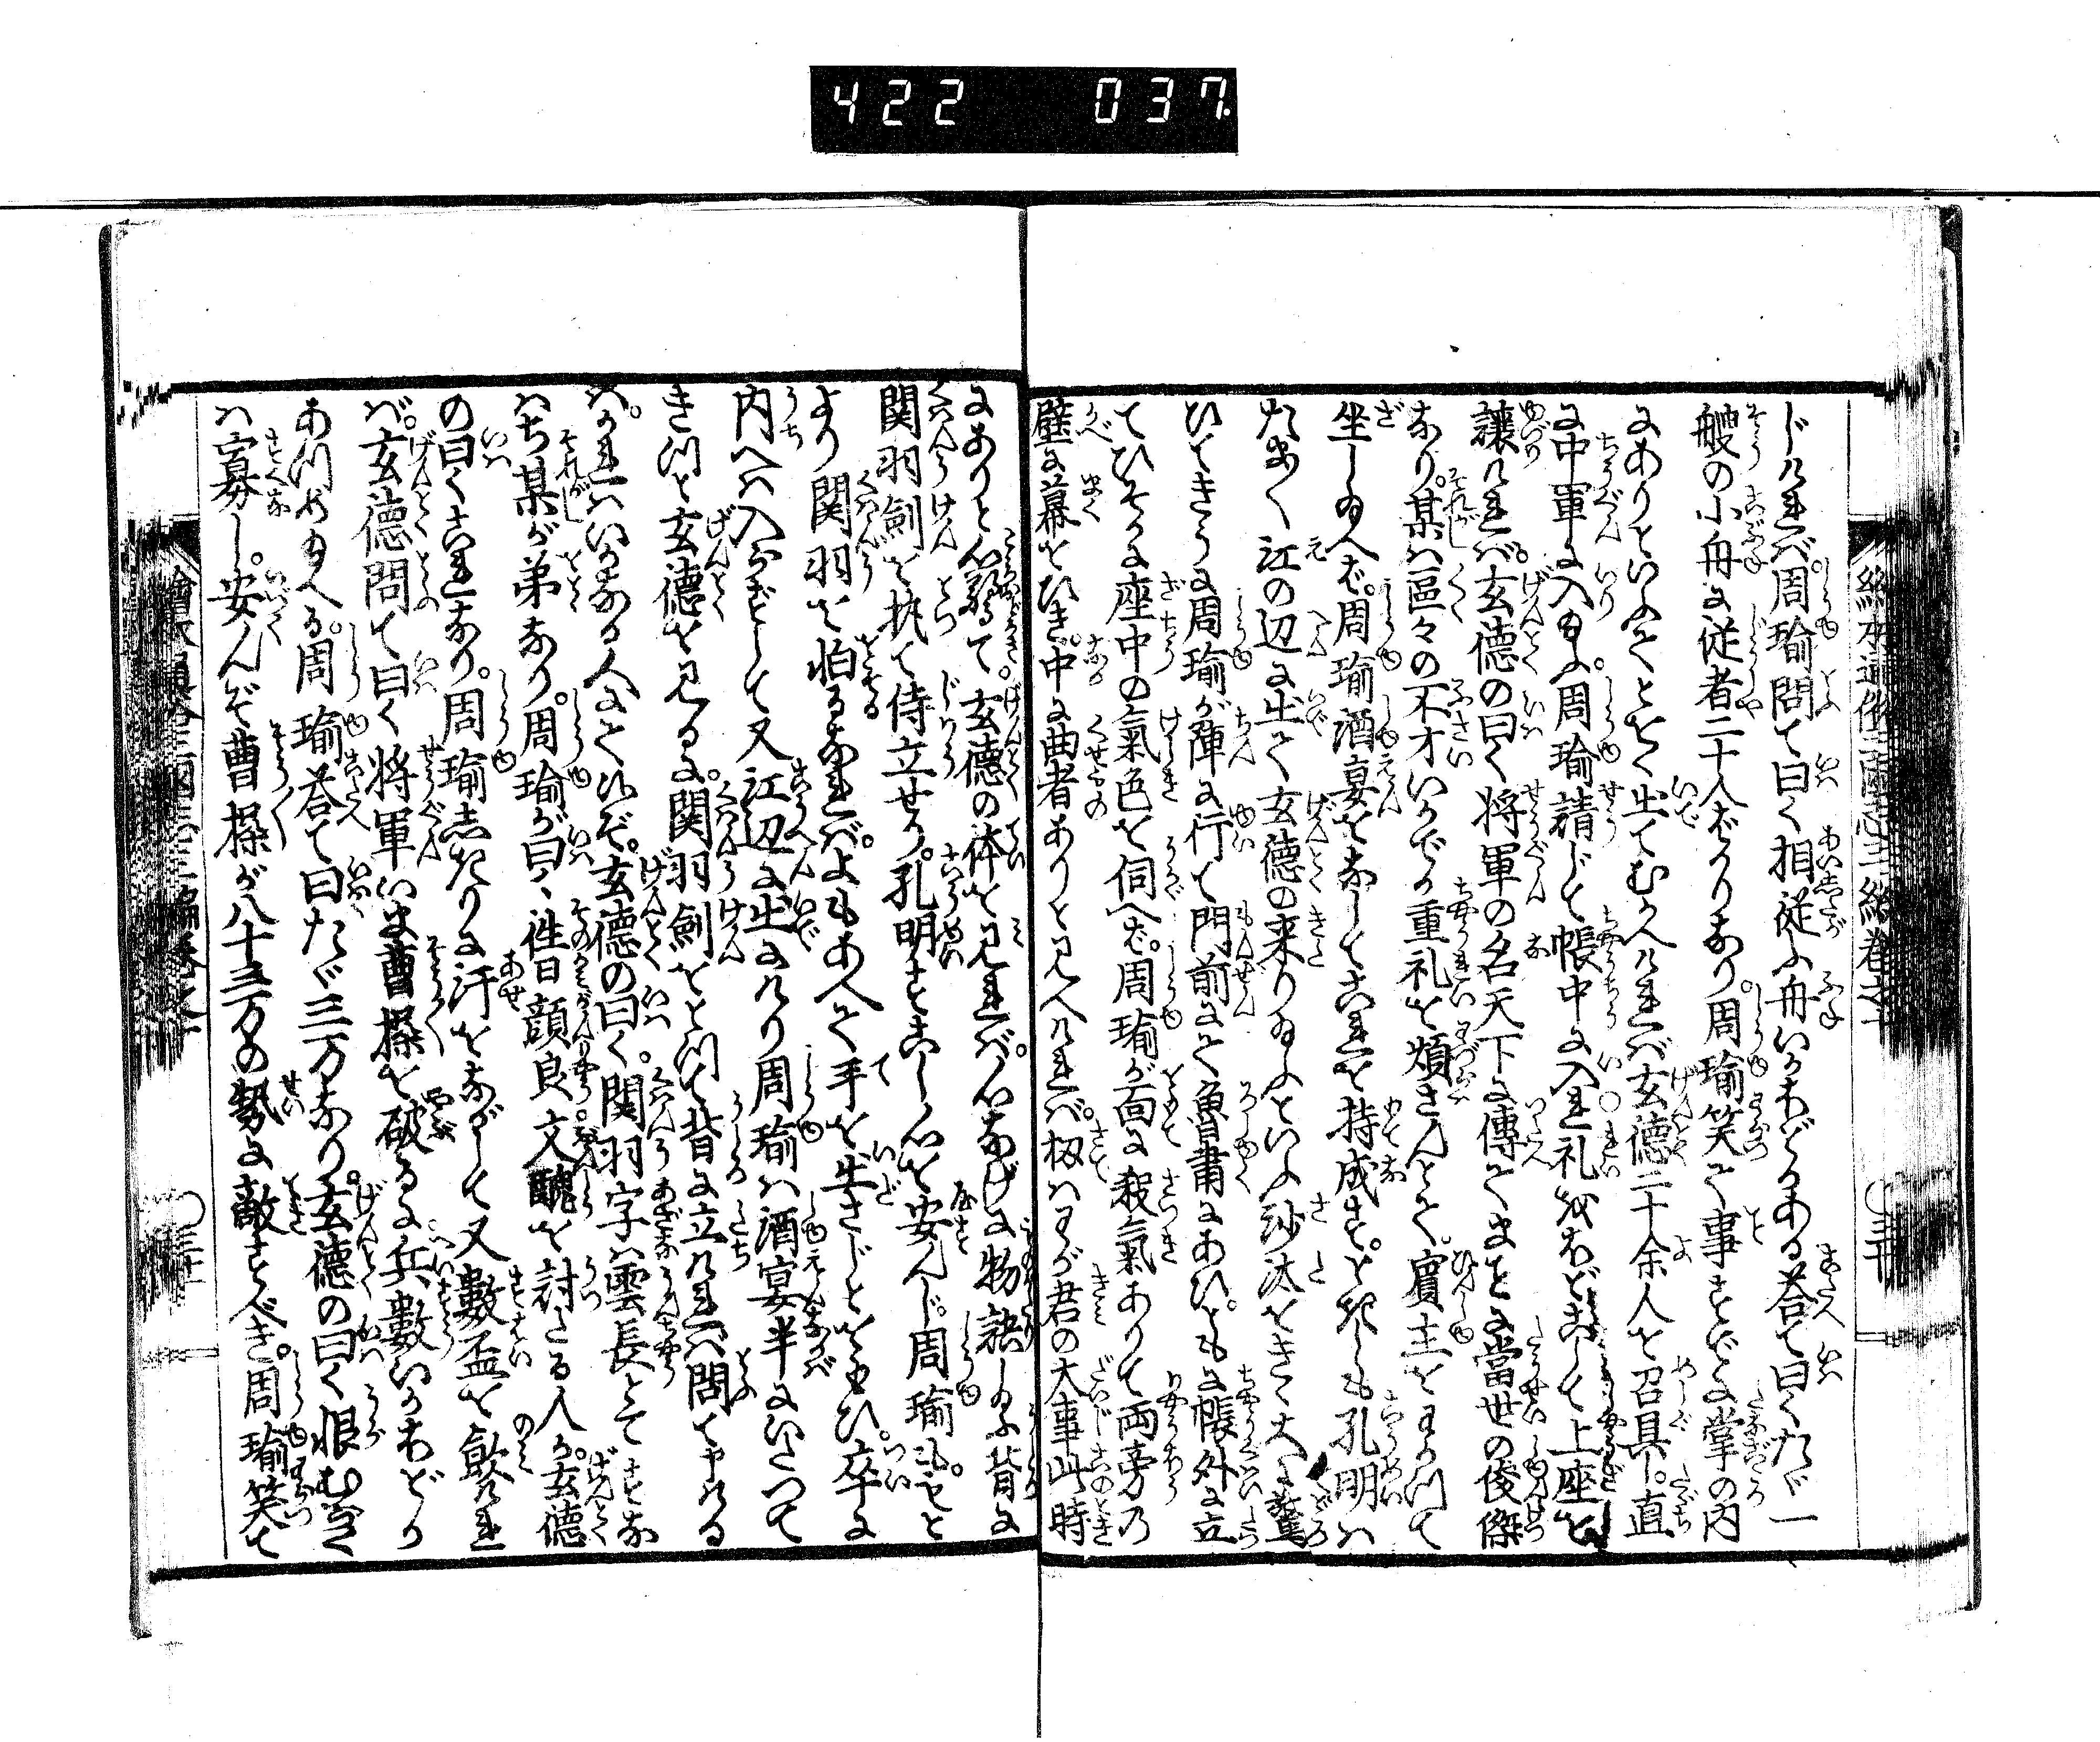 422 037
じければ。周瑜問て曰く相從ふ舟いかほどかある答て曰くたゞ一
艘の小舟に従者二十人ばかりなり。周瑜笑て事すでに掌の内
にありといふてとく出てむかへければ玄德二十余人を召具し。直
に中軍に入給ふ。周瑜請じて帳中に入れ礼をほどこして上座を
讓ければ。玄德の曰く将軍の名天下に傳てまことに當世の俊傑
なり。某は區々の不才いかでか重礼を煩さんとて。賓主をわかつて
坐し給へば。周瑜酒宴をなしてこれを持成す。とき孔明は
たまく江の辺に出て玄德の来り給ふといふ沙汰をきく大に驚
ひそきうに周瑜が陣に行て門前にて魯肅にあひ。ともに帳外に立
てひそかに座中の氣色を伺へば。周瑜が面に殺氣ありて両旁の
壁に幕をひき。中に曲者ありと見へければ。扨はわが君の大事此時
にありと心騒て。玄德の体を見れば。心なげに物語し給ふ背に
関羽剣を执て侍立せり。孔明すこし心を安んじ。周瑜も。もと
より関羽を怕るなれば。よもあへて手を出さじとをもひ。卒に
内へは入らずして又江辺に出にけり周瑜は酒宴半にいたつて
きつと玄德を見るに。関羽剣をとつて背に立ければ問て申ける
は。かれはいかなる人にて候ぞ。玄德の曰く。関羽字は雲長とて
はち某が弟なり。周瑜が曰く徃日顔良文醜を討たる人か。玄德
の曰くこれなり。周瑜しきりに汗をながして又數盃を飮けれ
ば。玄德問て曰く将軍いま曹操を破るに兵數いかほどか
あつめ給へる。周瑜荅て曰たゞ三万なり。玄德の曰く恨むらく
は寡し。安んぞ曹操が八十三万の勢に敵すべき。周瑜笑て